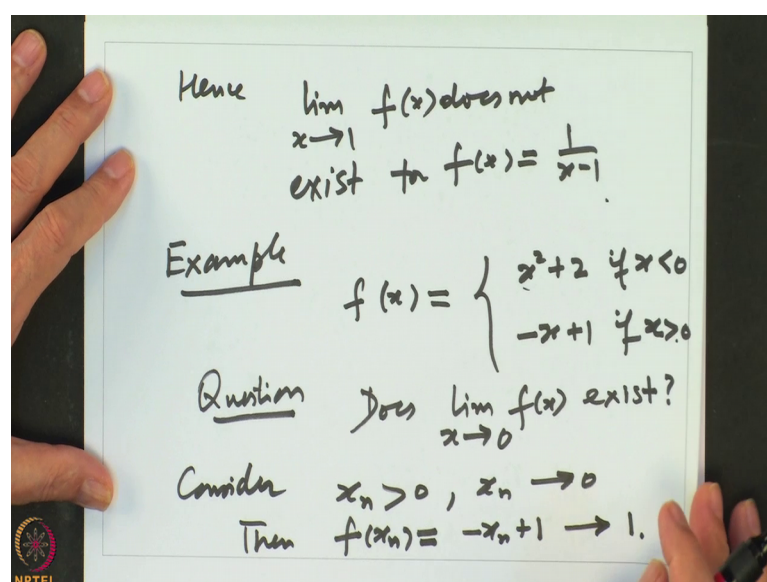 Hence lim f(x) does not
x→1
exist for f(x) = 1/(x-1).
Example
f(x) = { x²+2 if x<0
-x+1 if x>0
Question Does lim f(x) exist?
x→0
Consider xₙ > 0, xₙ → 0
Then f(xₙ) = -xₙ+1 → 1.
NPTEL